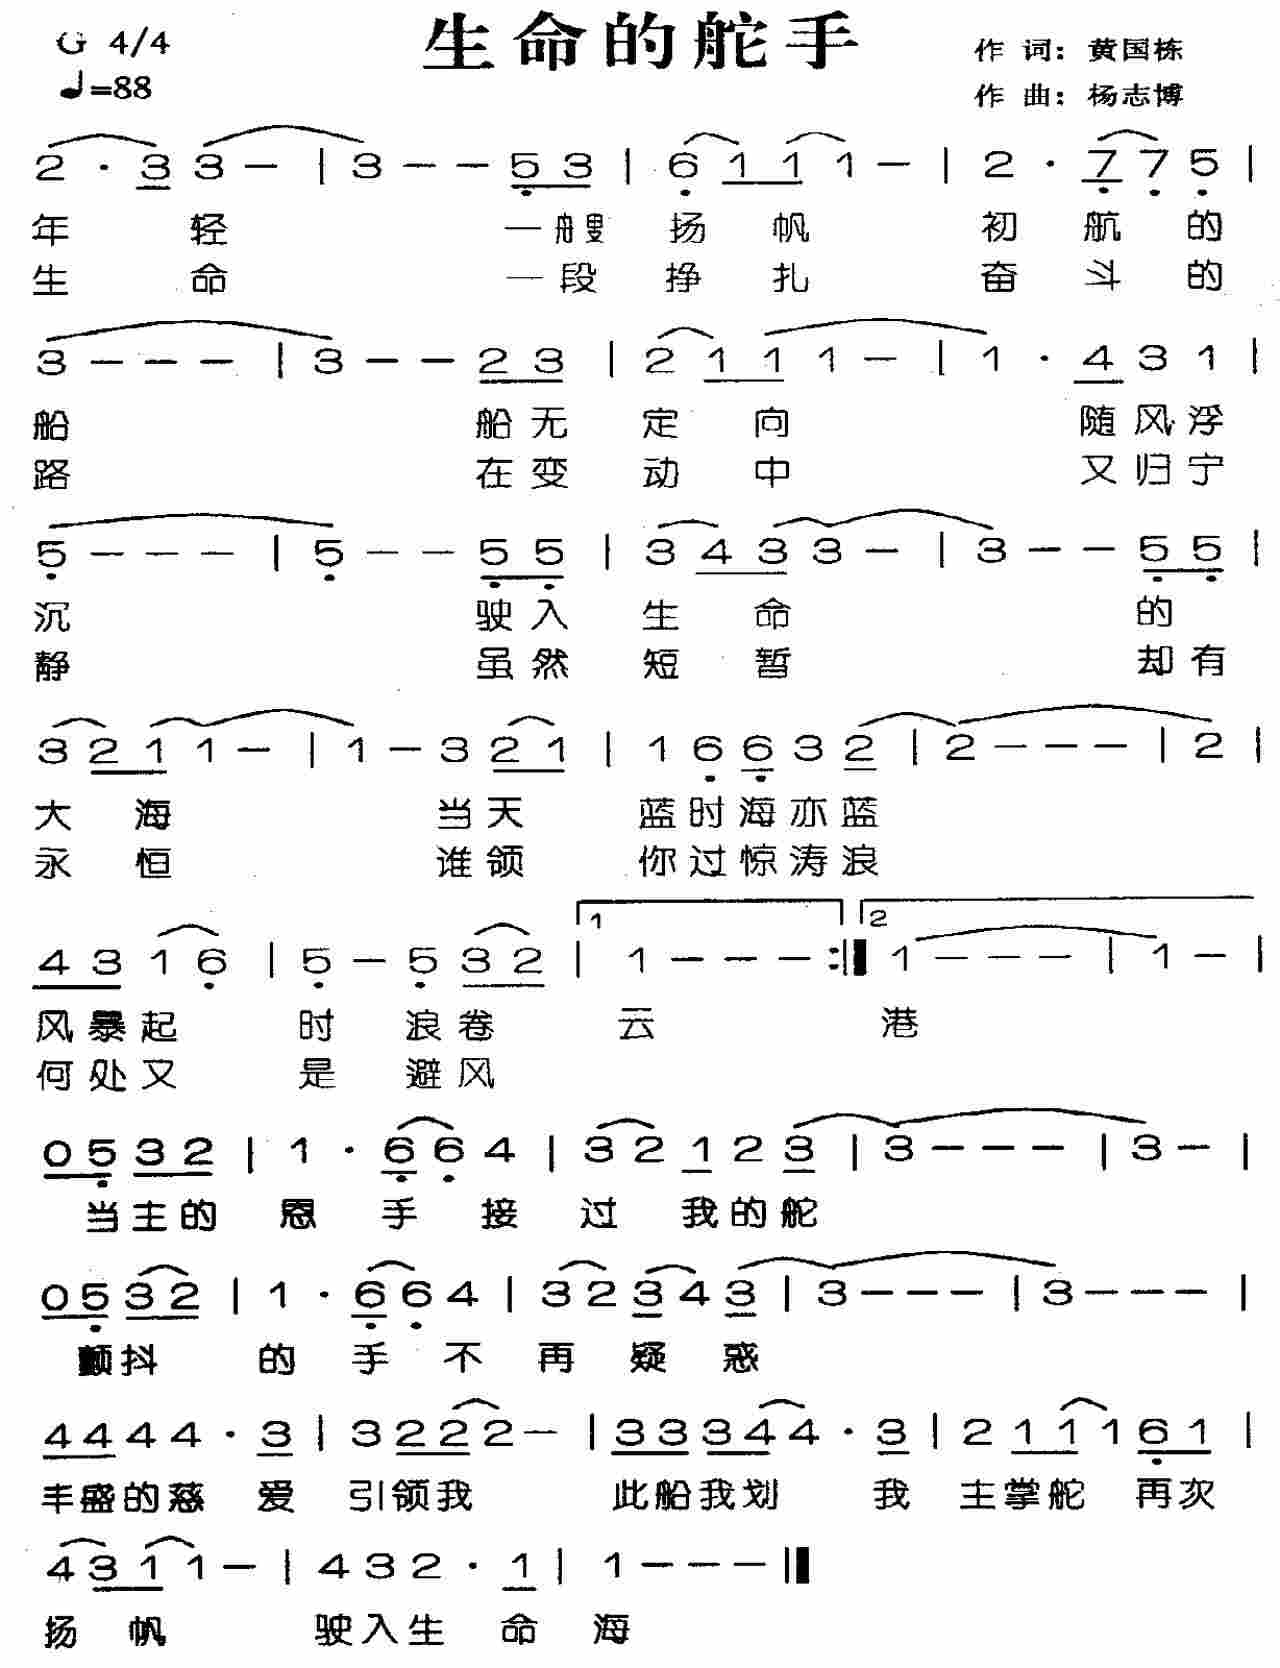 生命的舵手
G 4/4
♩=88
作 词：黄国栋
作 曲：杨志博
2 · 3 3 — | 3 — — 5 3 | 6 1 1 1 — | 2 · 7 7 5 |
年 轻 一艘 扬 帆 初 航 的
生 命 一段 挣 扎 奋 斗 的
3 — — — | 3 — — 2 3 | 2 1 1 1 — | 1 · 4 3 1 |
船 船无 定 向 随风浮
路 在变 动 中 又归宁
5 — — — | 5 — — 5 5 | 3 4 3 3 — | 3 — — 5 5 |
沉 驶入 生 命 的
静 虽然 短 暂 却有
3 2 1 1 — | 1 — 3 2 1 | 1 6 6 3 2 | 2 — — — | 2 |
大 海 当天 蓝时海亦蓝
永 恒 谁领 你过惊涛浪
1 2
4 3 1 6 | 5 — 5 3 2 | 1 — — — :|| 1 — — — | 1 — |
风暴起 时 浪卷 云 港
何处又 是 避风
0 5 3 2 | 1 · 6 6 4 | 3 2 1 2 3 | 3 — — — | 3 — |
当主的 恩 手 接 过 我的舵
0 5 3 2 | 1 · 6 6 4 | 3 2 3 4 3 | 3 — — — | 3 — — — |
颤抖 的 手 不 再 疑 惑
4 4 4 4 · 3 | 3 2 2 2 — | 3 3 3 4 4 · 3 | 2 1 1 1 6 1 |
丰盛的慈 爱 引领我 此船我划 我 主掌舵 再次
4 3 1 1 — | 4 3 2 · 1 | 1 — — — ||
扬 帆 驶入生 命 海